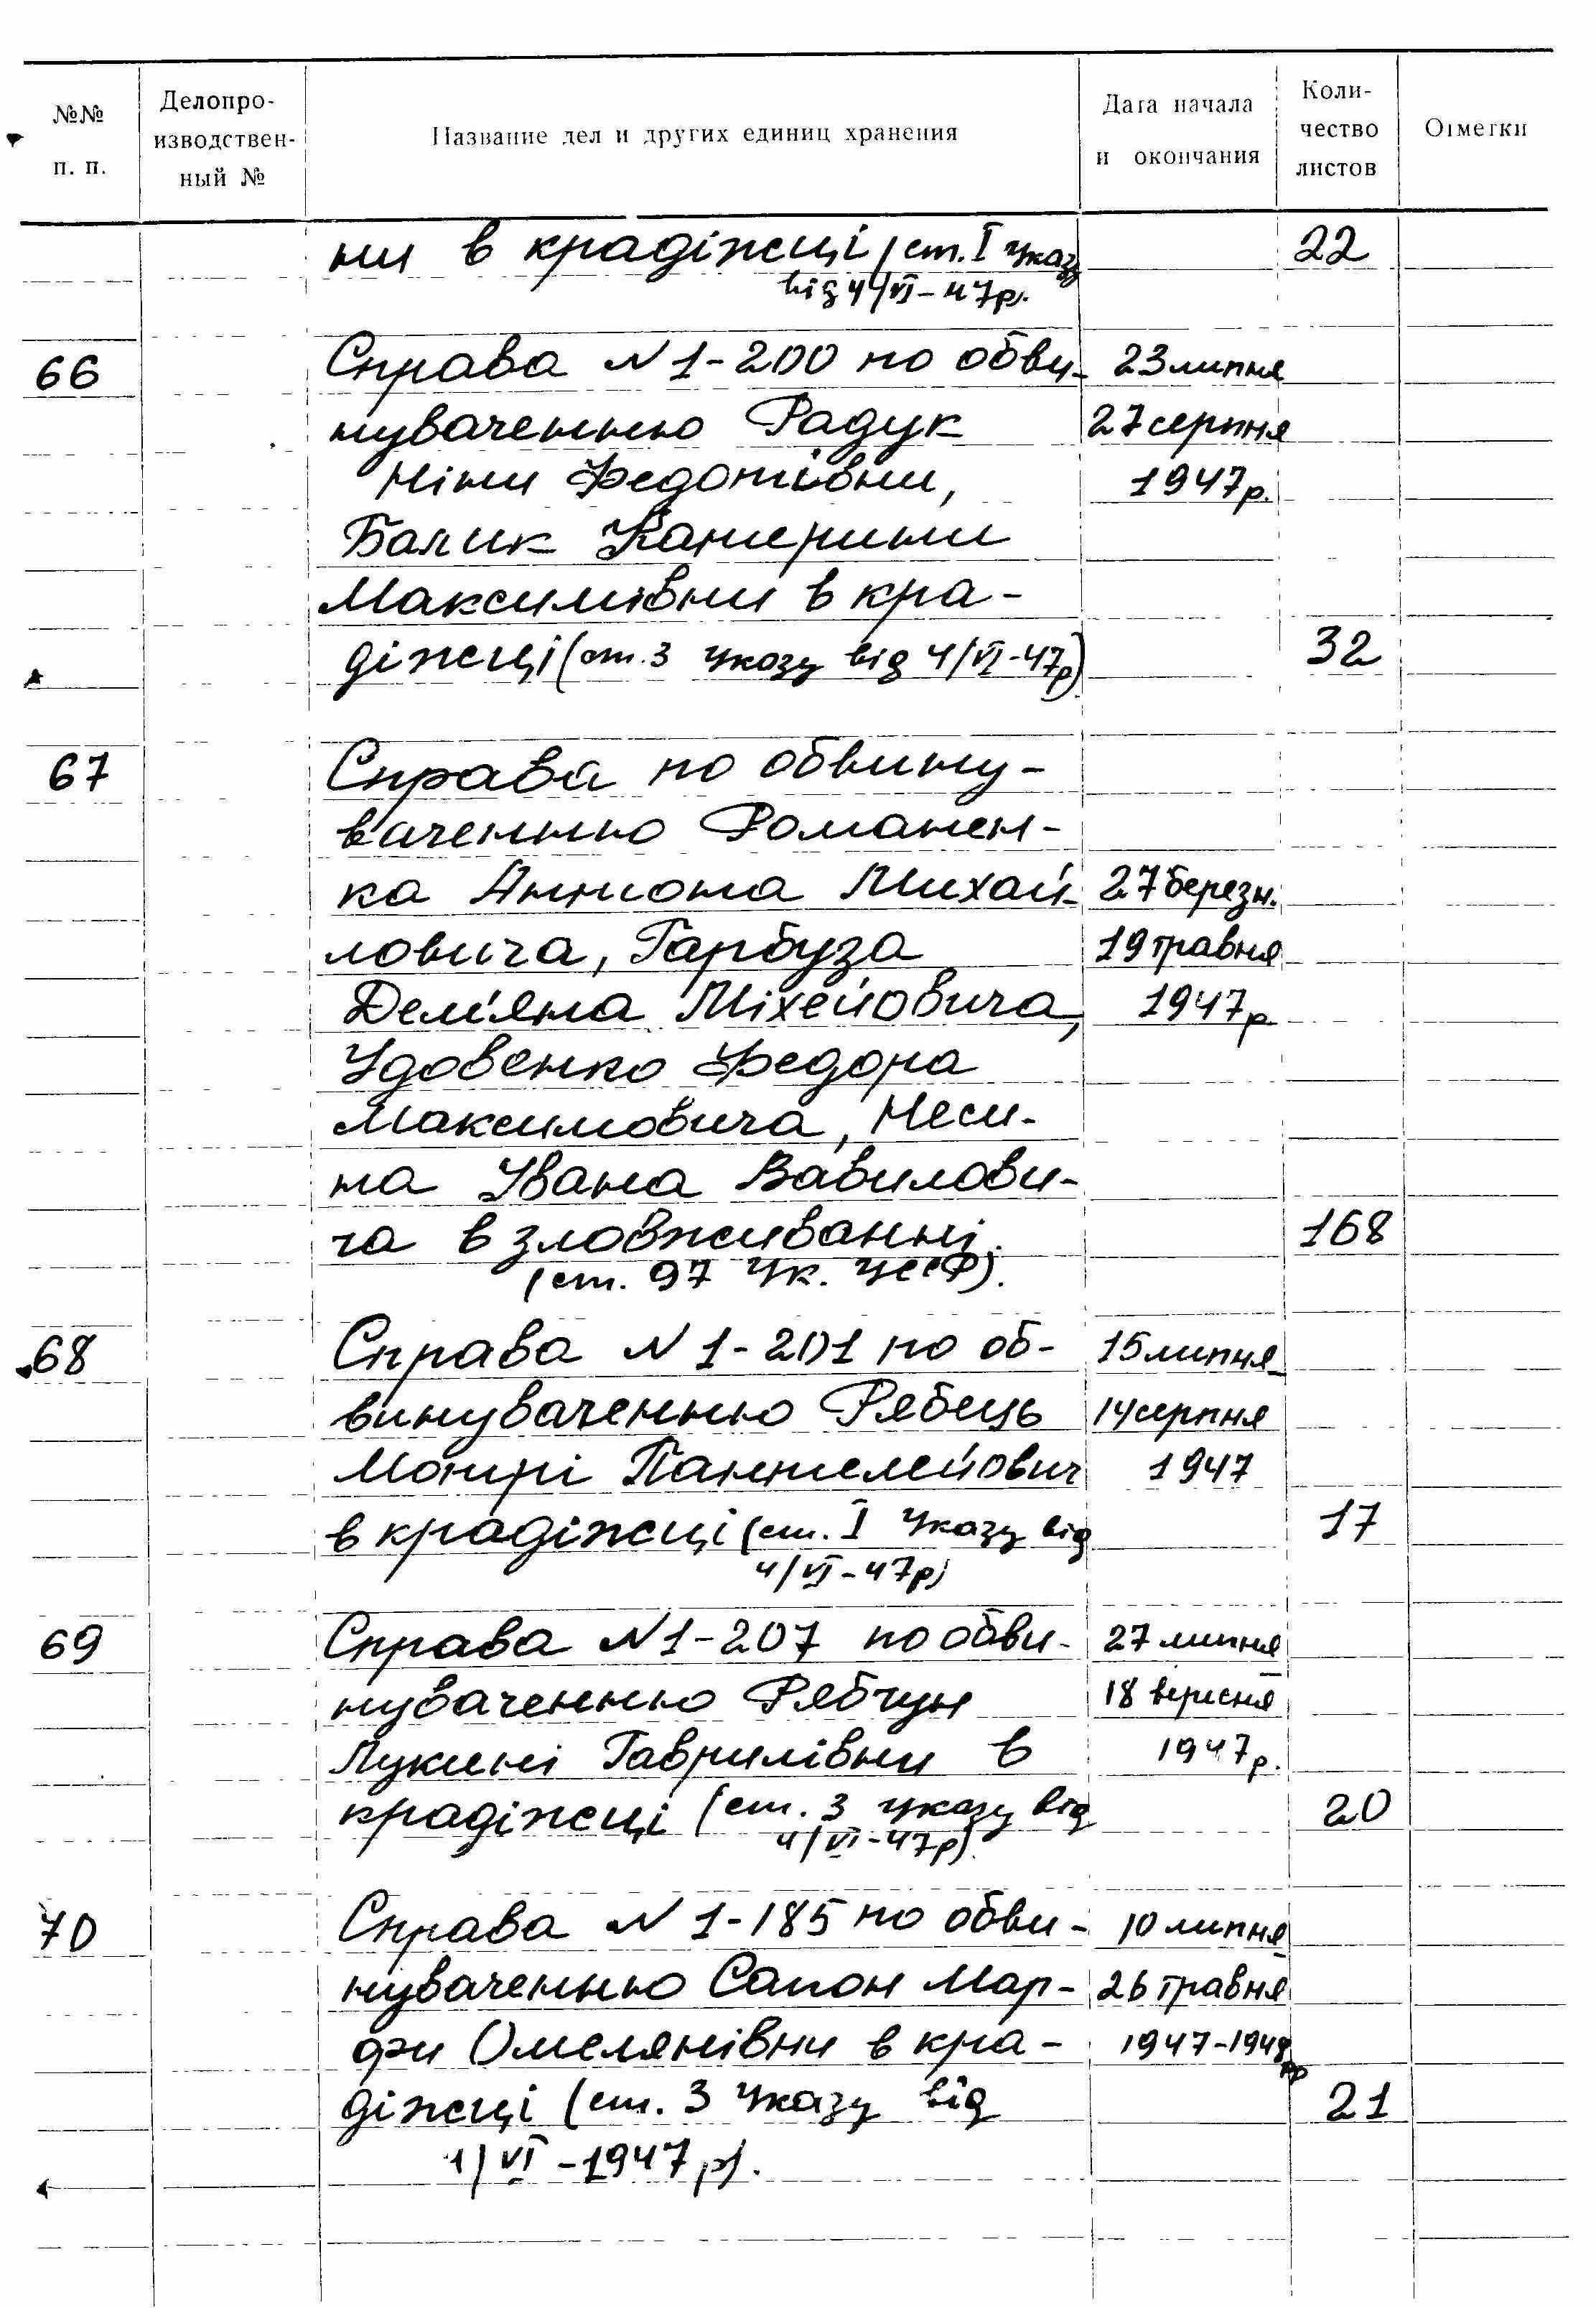 №№ п. п.
Делопроизводственный №
Название дел и других единиц хранения
Дата начала и окончания
Количество листов
Отметки
ни в крадіжці (ст. I Указу 22
від 4/VI-47р.
66 Справа N 1-200 по обви- 23 липня
нуваченню Радук 27 серпня
Ніни Федотівни, 1947р.
Балик Катерини
Максимівни в кра-
діжці (ст. 3 Указу від 4/VI-47р) 32
67 Справа по обвину-
ваченню Романен-
ка Антона Михай- 27 березн.
ловича, Гарбуза 19 травня
Дем'яна Міхейовича, 1947р
Удовенко Федора
Максимовича, Неси-
на Івана Вавилови-
ча в зловживанні 168
(ст. 97 Ук. УССР).
68 Справа N 1-201 по об- 15 липня
винуваченню Рябець 14 серпня
Мотрі Пантелейович 1947
в крадіжці (ст. I Указу від 17
4/VI-47р)
69 Справа N 1-207 по обви- 27 липня
нуваченню Рябчун 18 вересня
Лукині Гаврилівни в 1947р.
крадіжці (ст. 3 Указу від 20
4/VI-47р).
70 Справа N 1-185 по обви- 10 липня
нуваченню Сапон Мар- 26 травня
фи Омелянівни в кра- 1947-1948 рр
діжці (ст. 3 Указу від 21
4/VI-1947 р).